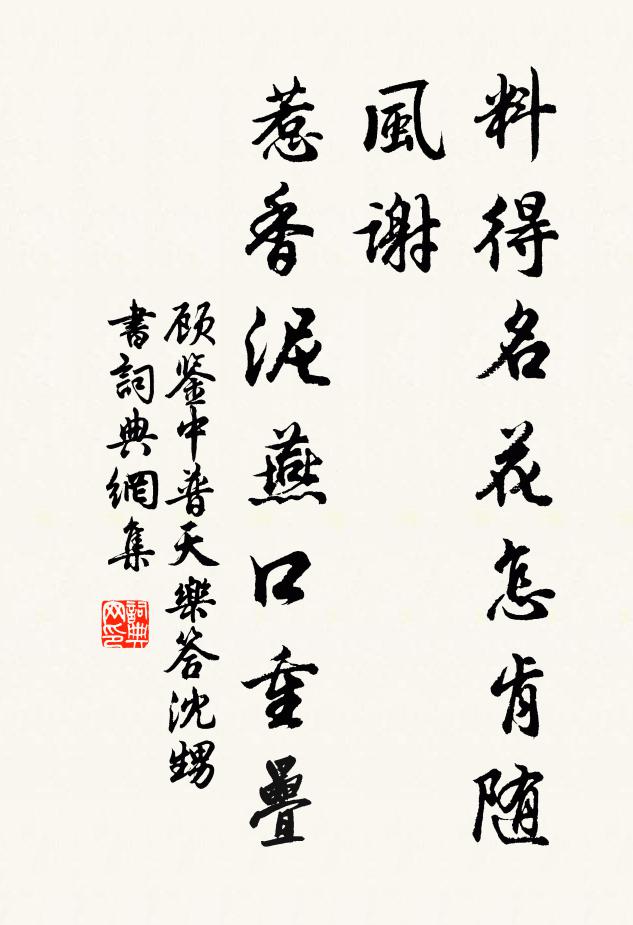 料得名花怎肯随
風謝
惹香泥燕口重疊
顾鉴中普天樂答沈甥
書詞典網集
詞典網印